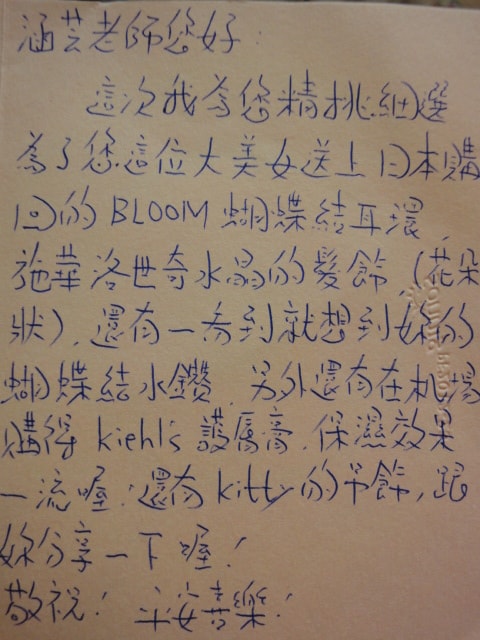 涵芸老師您好:
這次我為您精挑細選
為了您這位大美女送上日本購
回的 BLOOM 蝴蝶結耳環,
施華洛世奇水晶的髮飾(花朵
狀),還有一看到就想到妳的
蝴蝶結水鑽,另外還有在机場
購得 kiehl's 護唇膏,保濕效果
一流喔!還有 kitty 的吊飾,跟
妳分享一下喔!
敬祝! 平安喜樂!